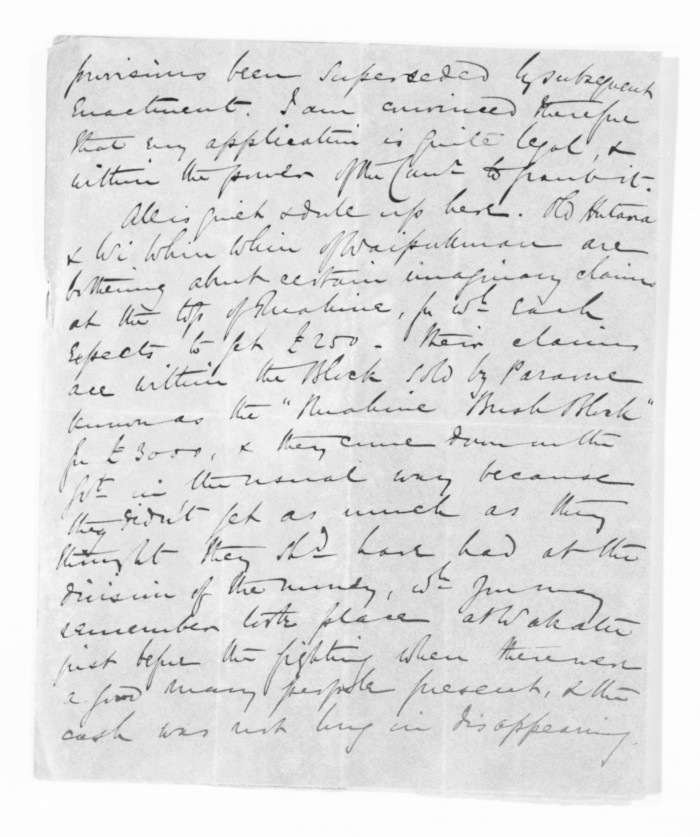 provisions been superseded by subsequent
enactment. I am convinced therefore
that my application is quite legal, &
within the power of the Govt to grant it.
All is quiet & dull up here. Old Hutana
& Wi Whin Whin of Waipukurau are
bothering about certain imaginary claims
at the top of Ruahine, for wh each
expects to get £250 - Their claims
are within the Block sold by Paraone
known as the "Ruahine Bush Block"
for £3000, & they come down on the
Gvt in the usual way because
they didn't get as much as they
thought they shd have had at the
division of the money, wh you may
remember took place at Wakatu
just before the fighting when there were
a good many people present, & the
cash was not long in disappearing.